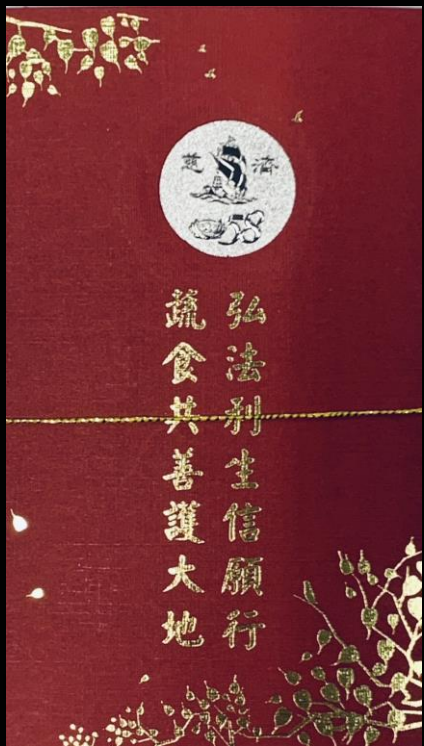 慈濟
弘法利生信願行
蔬食共善護大地